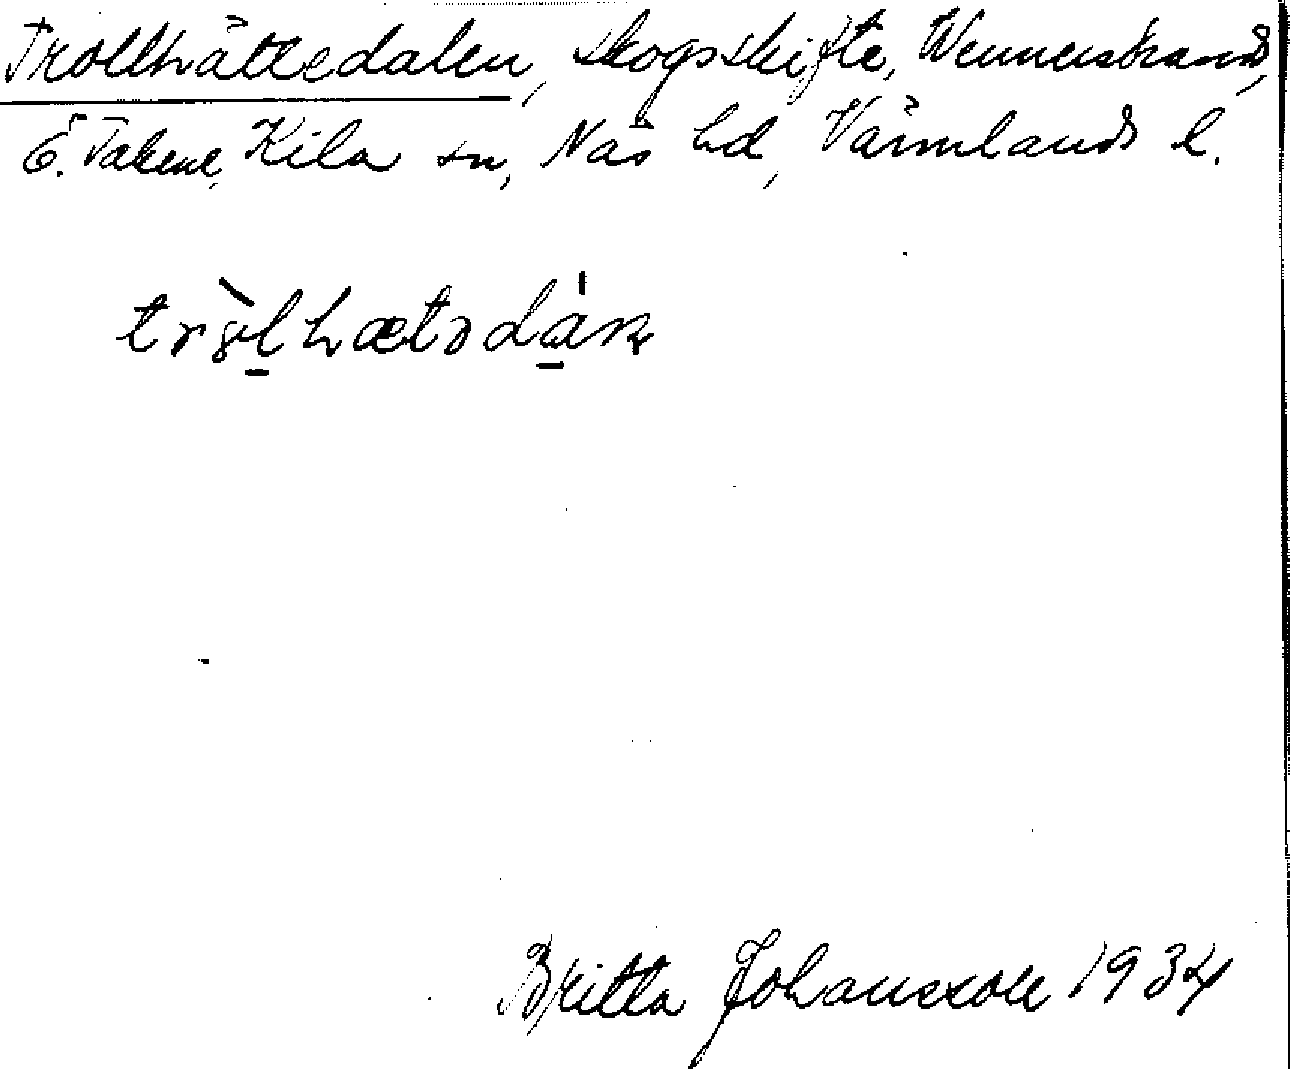 Trollhättedalen, skogsskifte, Wennerstrand,
Ö. Takene, Kila sn, Näs hd, Värmlands l.
Britta Johansson 1934